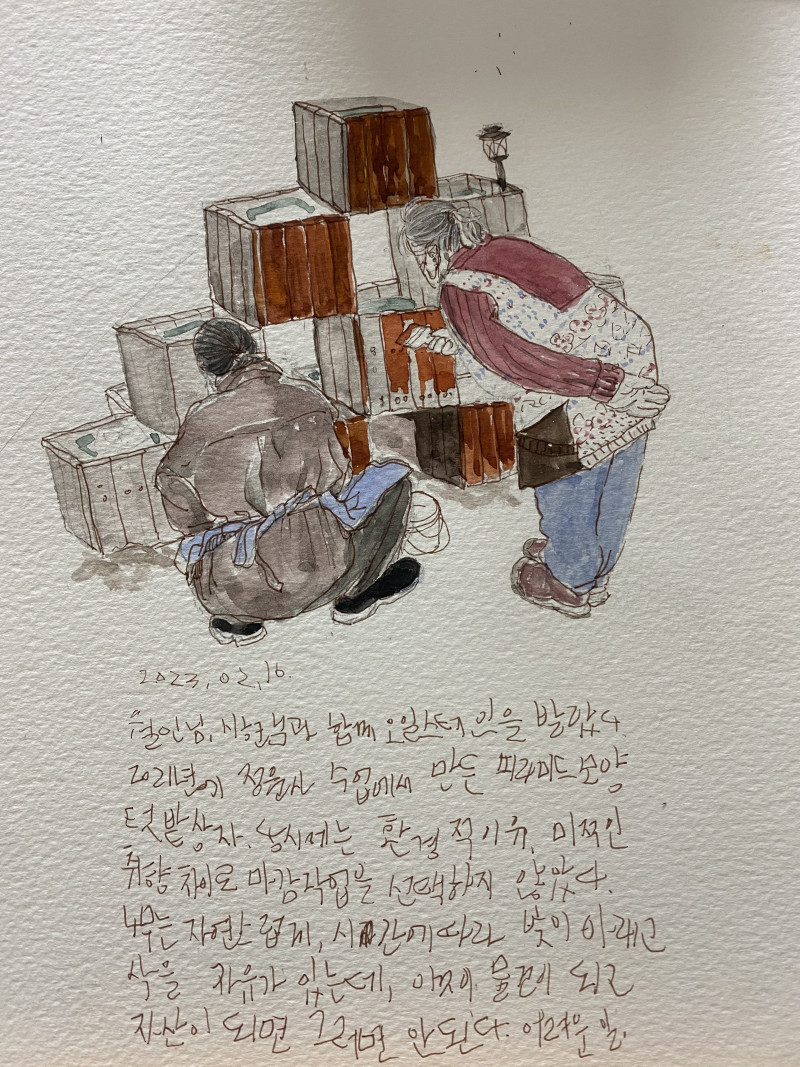 2023, 02, 16.
함께 오일스테인을 발랐다
2021년에 정원사 수업에서 만든 피라미드모양
텃밭상자. 당시에는 환경적이유, 미적인
취향 차이로 마감작업을 선택하지 않았다.
나무는 자연스럽게, 시간에따라 빛이 바래고
삭을 자유가 있는데, 이것이 물건이 되고
자산이 되면 그러면 안된다. 어려운 일.